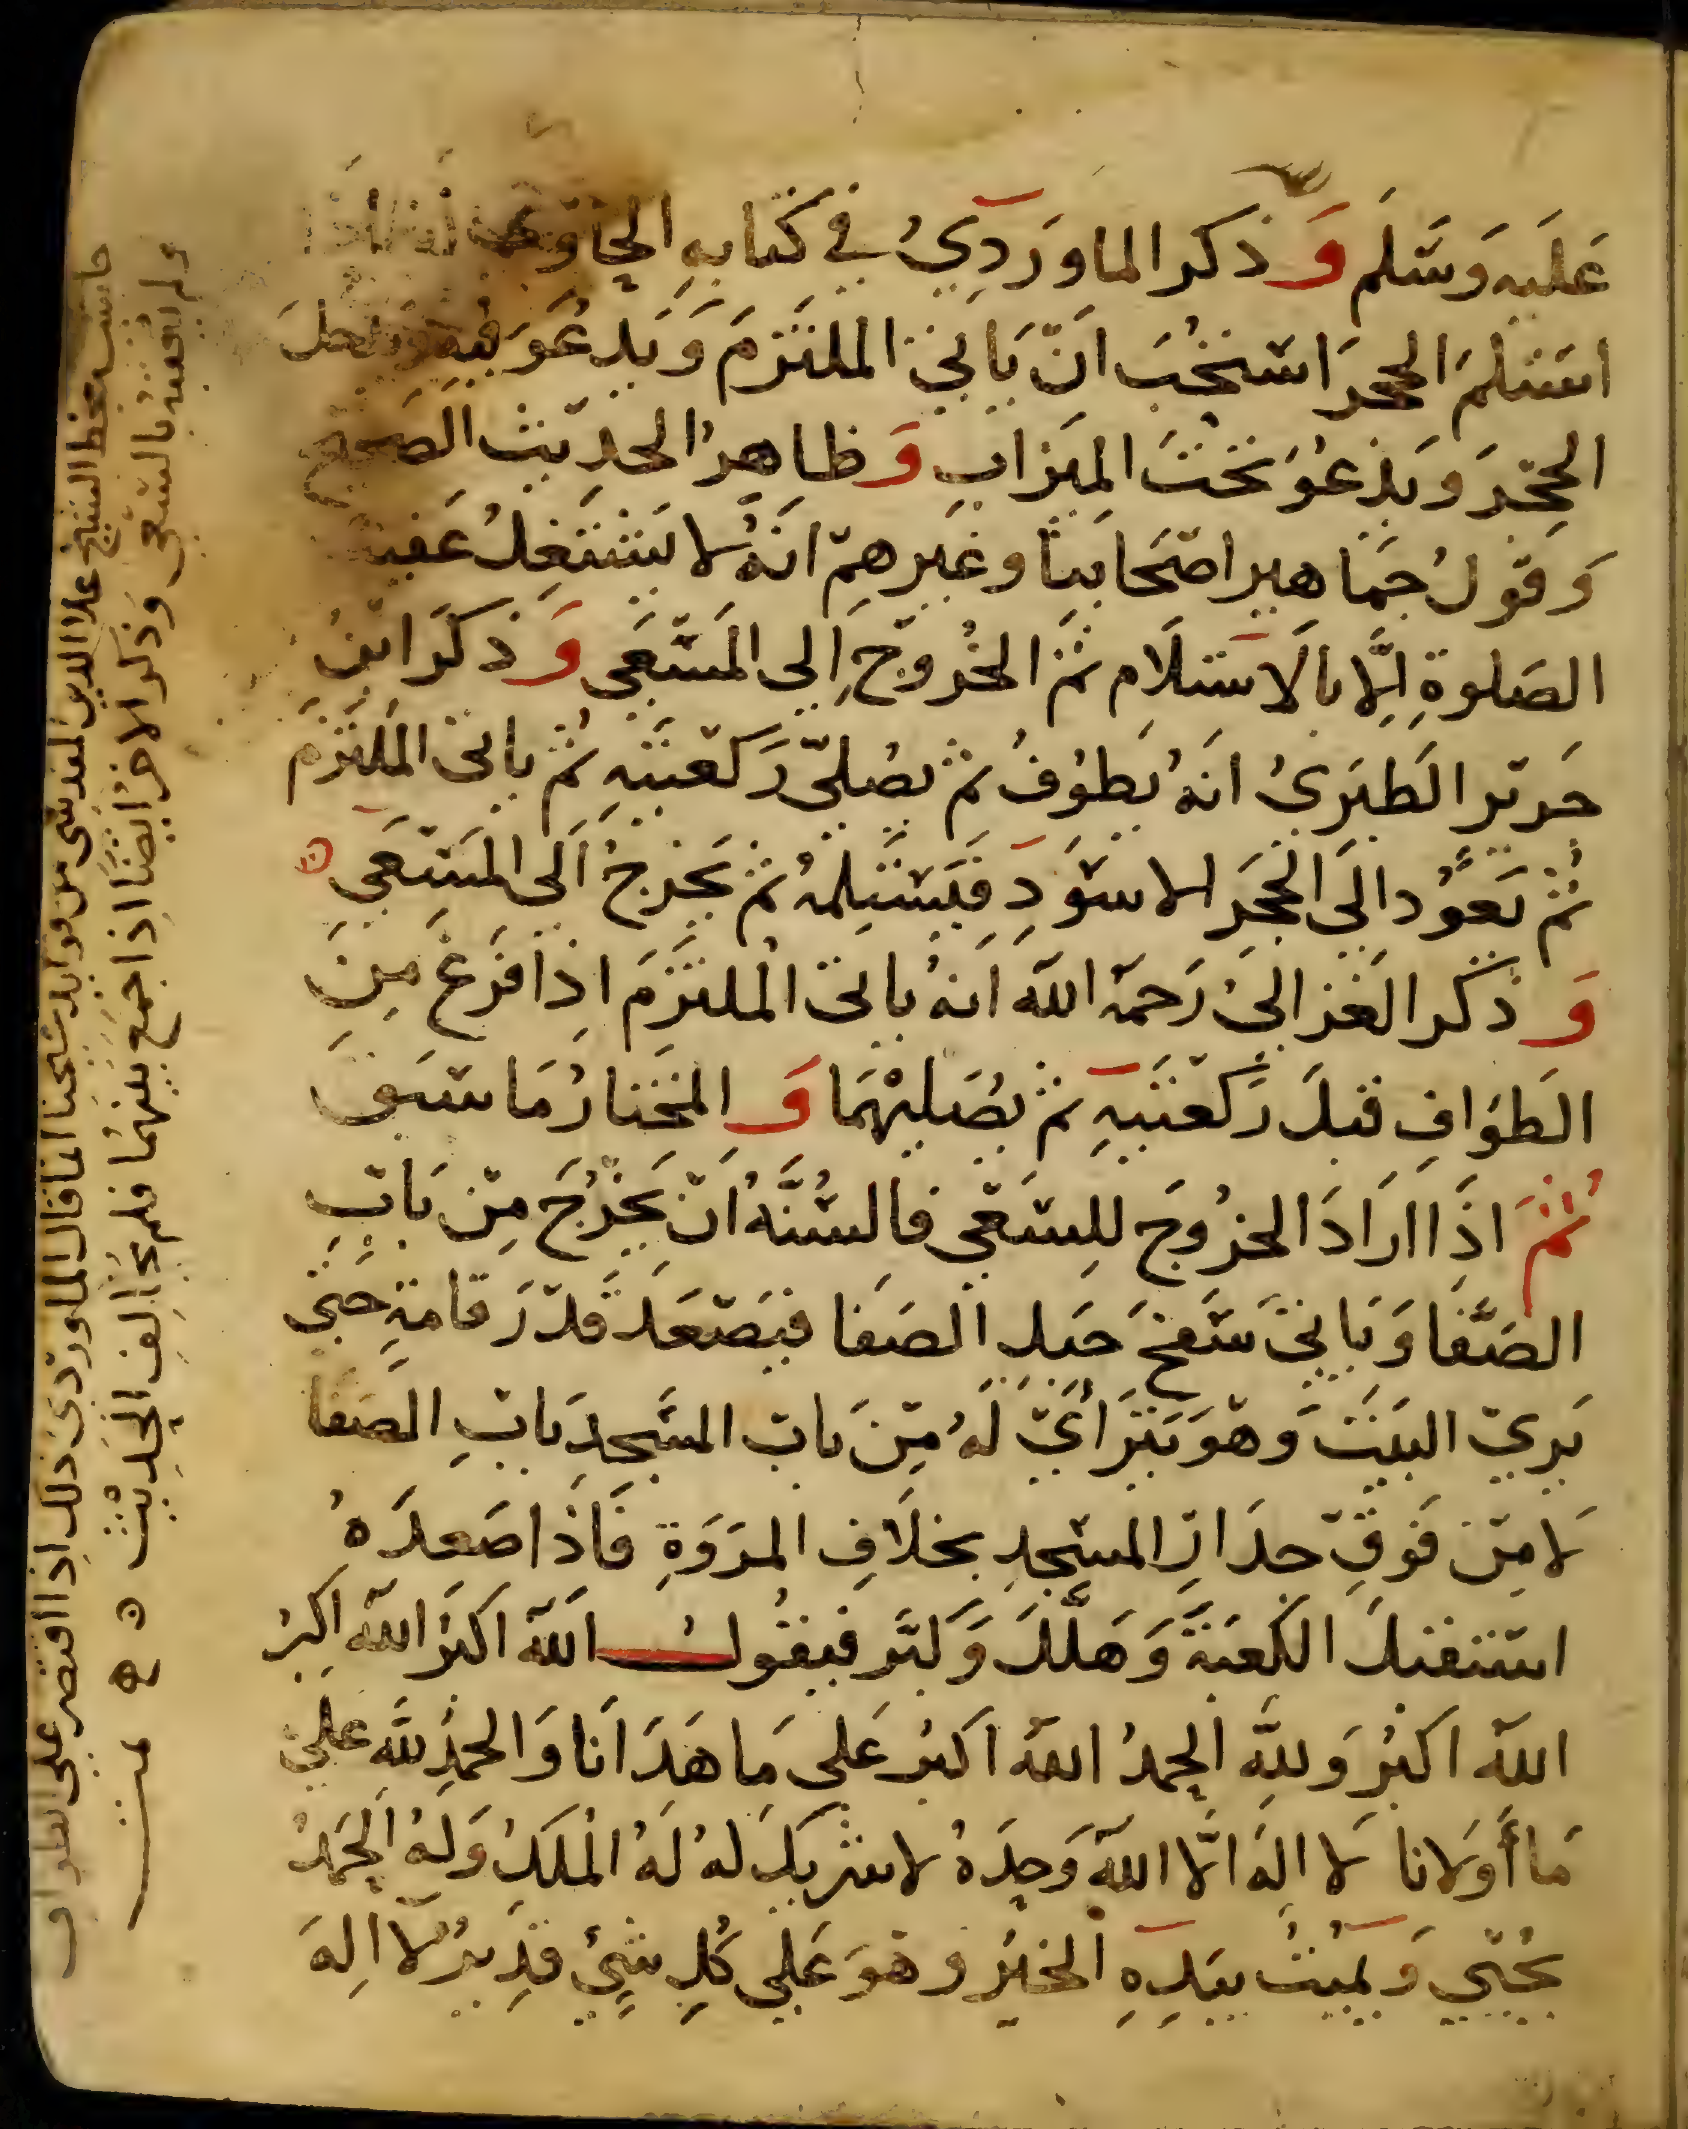 عَلَيه وَسَلَم وَذكر الماوَردِيُ في كتابهِ الحاوي أنه إذا
استلمَ الحجرَ استحُبَ انّ يَاتيَ الملتَزمَ وَيَدعُوَ فيه ويدخلَ
الحِجرَ وَيدعُوَ تحتَ الميَزابِ وَظاهرُ الحديث الصَحيح
وَقولُ جمَاهير اصحَابنا وغيَرهمّ انَهُ لا يَشتَغِلُ عَقيبَ
الصَلوةِ اِلَّا بالاستلَام ثمَ الخُروج اِلى المَسّعَى وَذكَرَ ابنُ
جَريّر الطَبرَىُ انَهُ يَطوُفُ ثم يصُلىّ رَكعَتيَهِ ثم ياتى المَلتَزَمَ
ثُم يَعوُد الَى الحَجَر الاسوَدِ فيَستَلِمُهُ ثم يَخرجُ الَى المَسّعَى ن
وَذكر الغزالىُ رَحمهَ اللَه اَنهُ ياتى المُلتزَمَ اذِا فَرَغ مِنِ
الطَوَافِ قبلَ رَكعَتيَهِ ثم يصُليْهمَا وَالمخَتارُ مَا سَبق
ثُمَ اذَا ارَادَ الخرُوجَ للِسَعّى فالسُنَّةُ اَنّ يَخرُجَ مِنّ بَابِ
الصَّفَا وَيَاتيَ سَفحَ جَبلِ الصَفا فيَصّعَدَ قَدّرَ قامَةٍ حتىَ
يَرىّ البيَتَ وَهوَ يَترَاءَىّ لَهُ مِنّ بَاب المسَجدِ بَابِ الصَفَا
لَا مِنّ فَوقِ جدَارِ المسّجدِ بخلَافِ المرَوَةِ فَاذَا صَعِدَهُ
استقبلَ الكَعبَةَ وَهَلَّلَ وَكبَّر فيقوُلُ اللَه اَكبرَ اللَه اكبرُ
اللَه اكبرُ وَللِّه الحمدُ اللَه اكبرُ عَلى مَا هَدَانَا وَالحمَدُ للِّه عَلى
مَا أَوَلَانا لَا الِهَ الَّا اللَه وَحدَهُ لا شريكَ لهُ لَهُ المُلكُ وَلهُ الحمَدُ
يحُيّي وَيميُتُ بيَدِهِ الخيرُ وهوَ عَلى كُلِ شيٍء قدِيرٌ لَا الِهَ
حاشية بخط الشيخ علا الدين المقدسي من فوايد شيخنا انما قال الماوردى ذلك اذا اقتصر على الطواف
ولم يعقبه بالسعي وذكر الاخر ايضا اذا جمع بينهما فلم يخالف الحديث ن ه تمت